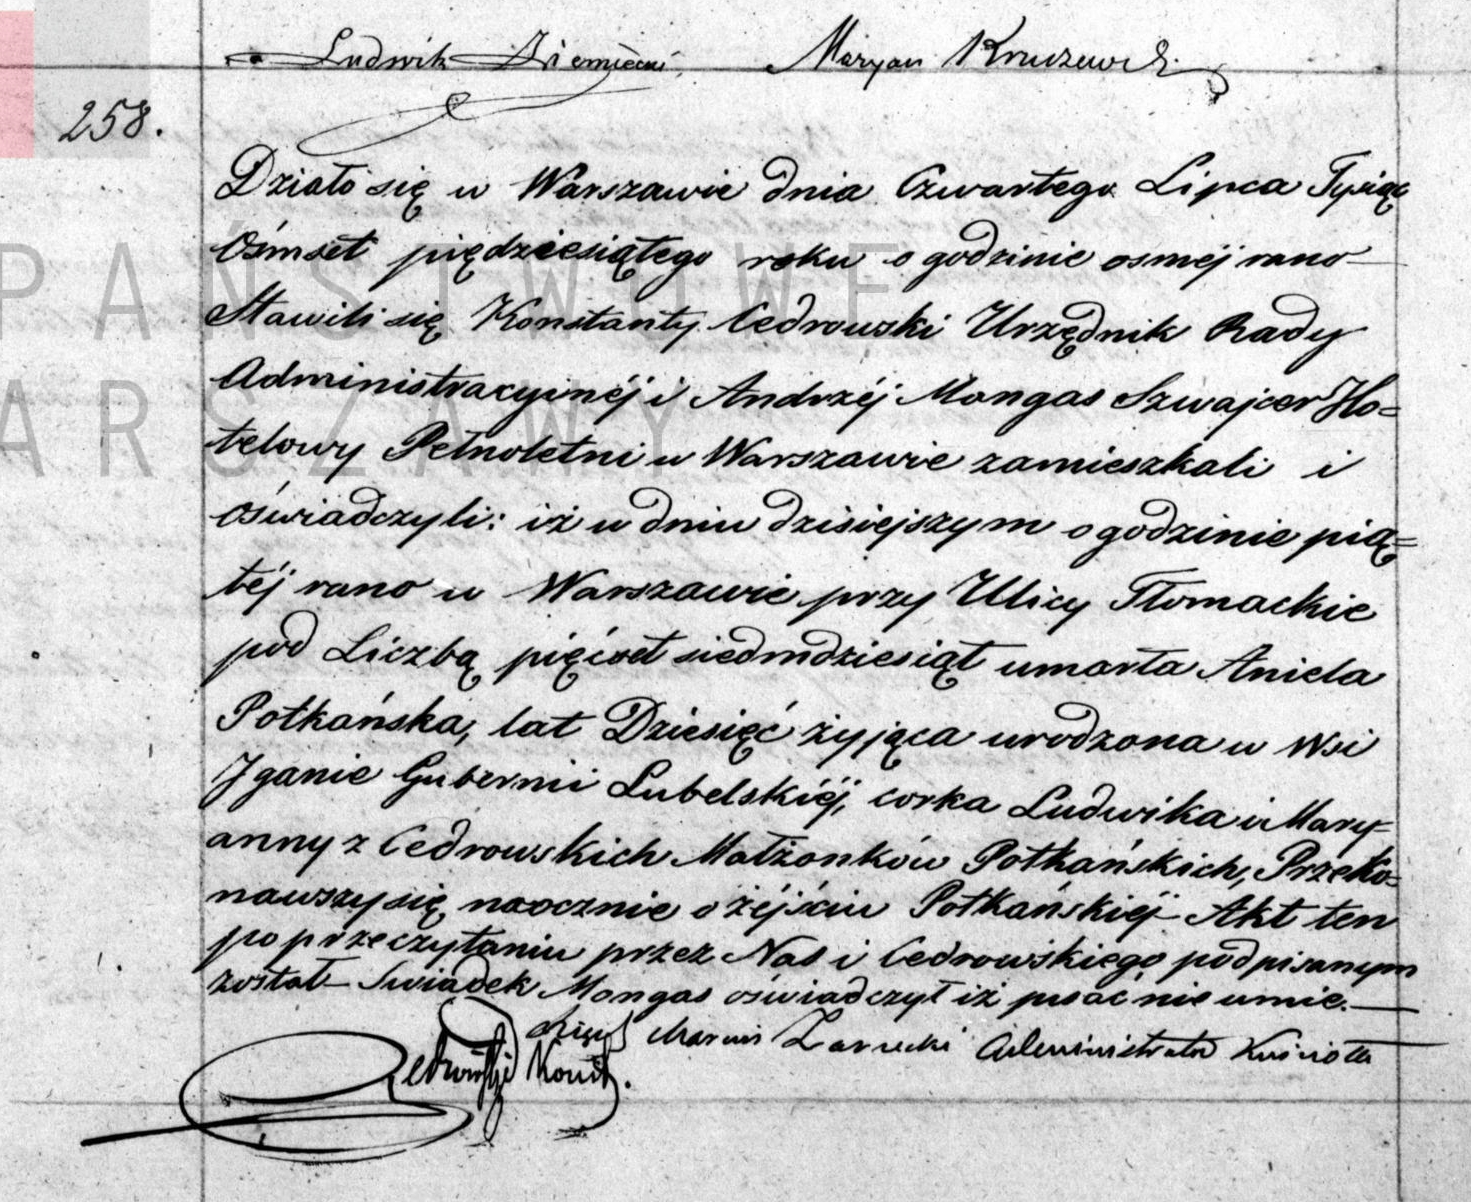 Ludwik Ziemięcki Maryan Kruszewski
258.
Działo się w Warszawie dnia Czwartego Lipca Tysiąc
Ośmset piędziesiątego roku o godzinie osméj rano
Stawili się Konstanty Cedrowski Urzędnik Rady
Administracyinéj i Andrzéj Mongas Szwajcer Ho=
telowy Pełnoletni w Warszawie zamieszkali i
oświadczyli: iż w dniu dzisiejszym o godzinie pią=
téj rano w Warszawie przy Ulicy Tłomackie
pod Liczbą pięćset siedmdziesiąt umarła Aniela
Potkańska, lat Dziesięć żyjąca urodzona w Wsi
Iganie Gubernii Lubelskiéj, corka Ludwika i Mary=
anny z Cedrowskich Małżonków Potkańskich, Przeko=
nawszy się naocznie o zéjściu Potkańskiéj Akt ten
po przeczytaniu przez Nas i Cedrowskiego podpisanym
został Swiadek Mongas oświadczył iż pisać nie umie.
Xiądz Marcin Administrator Kościoła
Cedrowski Konst.
PAŃSTWOWE
WARSZAWY